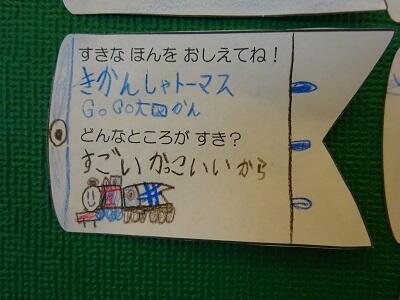 すきな ほんを おしえてね！
きかんしゃトーマス
GoGo大図かん
どんなところが すき？
すごい かっこいい から